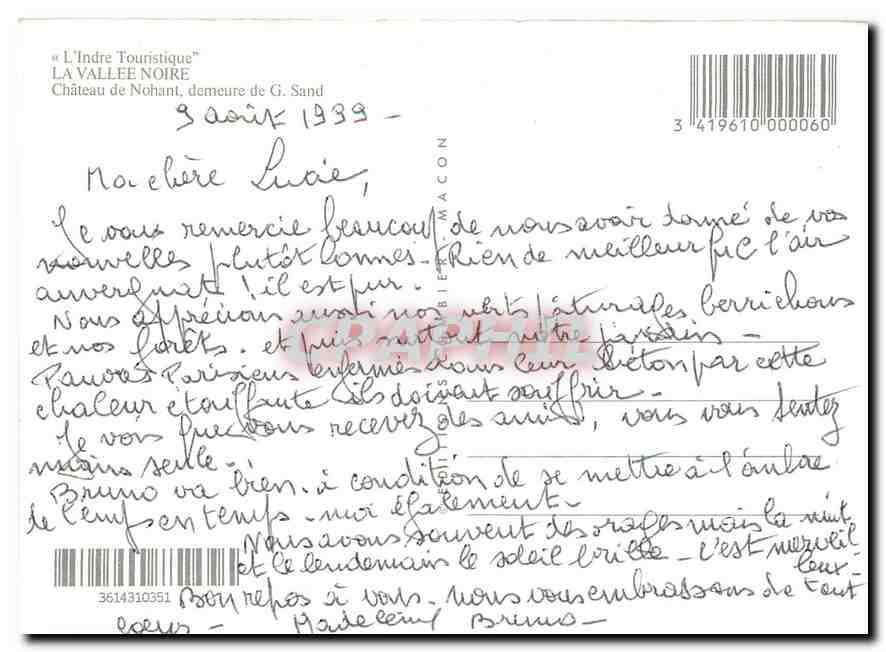 « L'Indre Touristique"
LA VALLEE NOIRE
Château de Nohant, demeure de G. Sand
3 419610 000060
9 août 1999 -
Ma chère Lucie,
Je vous remercie beaucoup de nous avoir donné de vos
nouvelles plutôt bonnes. Rien de meilleur que l'air
auvergnat ! il est pur.
Nous apprécions aussi nos verts pâturages berrichons
et nos forêts. et puis surtout notre jardin -
Pauvres Parisiens enfermés dans leur béton par cette
chaleur étouffante ils doivent souffrir.
Je vois que vous recevez des amis, vous vous sentez
moins seule.
Bruno va bien. à condition de se mettre à l'ombre
de temps en temps. moi également.
Nous avons souvent des orages mais la nuit
et le lendemain le soleil brille - c'est merveil
leux -
Bon repos à vous. nous vous embrassons de tout
coeur - Madeleine Bruno -
3614310351
MACON
CPAPHIL